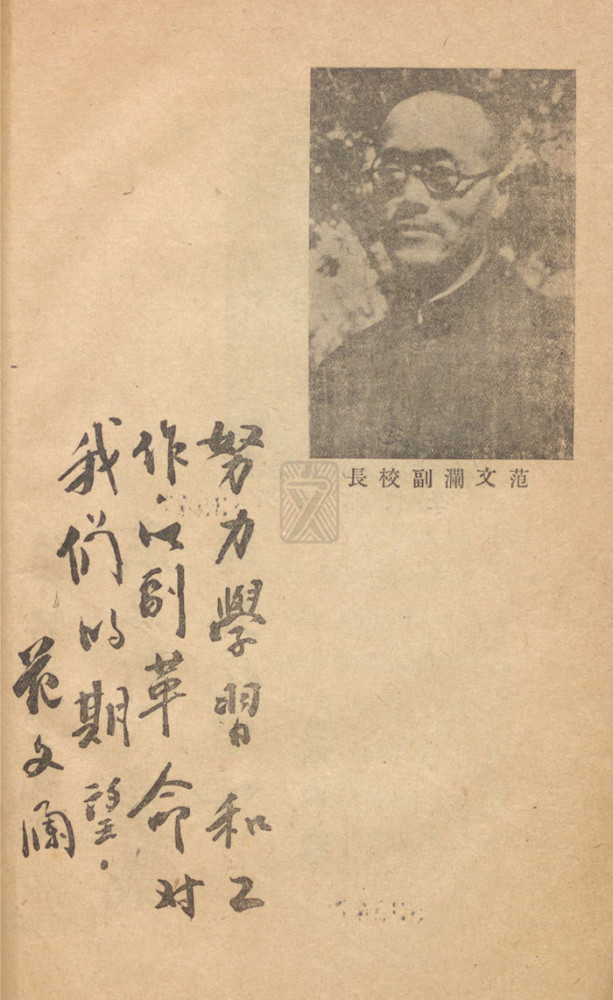 范文瀾副校長
努力學習和工
作以副革命对
我们的期望。
范文瀾